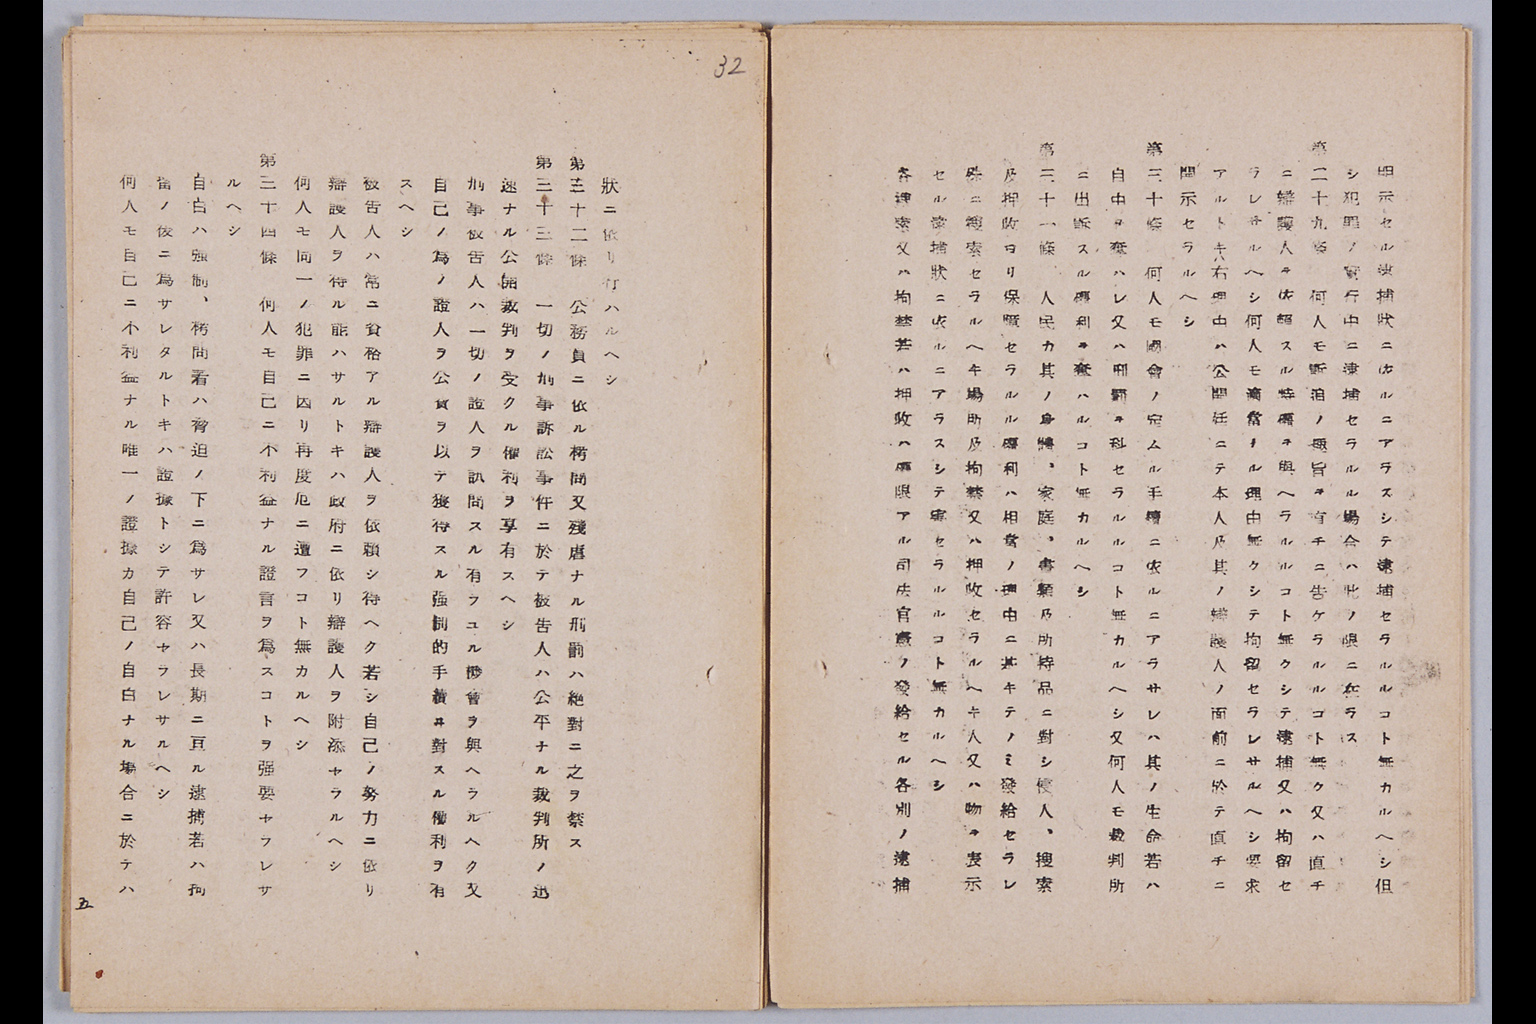 明示セル逮捕狀ニ依ルニアラスシテ逮捕セラルルコト無カルヘシ但
シ犯罪ノ實行中ニ逮捕セラルル場合ハ此ノ限ニ在ラス
第二十九條 何人モ訴追ノ趣旨ヲ直チニ告ケラルルコト無ク又ハ直チ
ニ辯護人ヲ依賴スル特權ヲ與ヘラルルコト無クシテ逮捕又ハ拘留セ
ラレサルヘシ何人モ適當ナル理由無クシテ拘留セラレサルヘシ要求
アルトキハ右理由ハ公開廷ニテ本人及其ノ辯護人ノ面前ニ於テ直チニ
開示セラルヘシ
第三十條 何人モ國會ノ定ムル手續ニ依ルニアラサレハ其ノ生命若ハ
自由ヲ奪ハレ又ハ刑罰ヲ科セラルルコト無カルヘシ又何人モ裁判所
ニ出訴スル權利ヲ奪ハルルコト無カルヘシ
第三十一條 人民カ其ノ身體、家庭、書類及所持品ニ對シ侵入、搜索
及押收ヨリ保障セラルル權利ハ相當ノ理由ニ基キテノミ發給セラレ
殊ニ搜索セラルヘキ場所及拘禁又ハ押收セラルヘキ人又ハ物ヲ表示
セル逮捕狀ニ依ルニアラスシテ害セラルルコト無カルヘシ
各搜索又ハ拘禁若ハ押收ハ權限アル司法官憲ノ發給セル各別ノ逮捕
32
狀ニ依リ行ハルヘシ
第三十二條 公務員ニ依ル拷問又殘虐ナル刑罰ハ絕對ニ之ヲ禁ス
第三十三條 一切ノ刑事訴訟事件ニ於テ被告人ハ公平ナル裁判所ノ迅
速ナル公開裁判ヲ受クル權利ヲ享有スヘシ
刑事被告人ハ一切ノ證人ヲ訊問スル有ラユル機會ヲ與ヘラルヘク又
自己ノ爲ノ證人ヲ公費ヲ以テ獲得スル强制的手續ニ對スル權利ヲ有
スヘシ
被告人ハ常ニ資格アル辯護人ヲ依賴シ得ヘク若シ自己ノ努力ニ依リ
辯護人ヲ得ル能ハサルトキハ政府ニ依リ辯護人ヲ附添セラルヘシ
何人モ同一ノ犯罪ニ因リ再度厄ニ遭フコト無カルヘシ
第三十四條 何人モ自己ニ不利益ナル證言ヲ爲スコトヲ强要セラレサ
ルヘシ
自白ハ强制、拷問若ハ脅迫ノ下ニ爲サレ又ハ長期ニ亘ル逮捕若ハ拘
留ノ後ニ爲サレタルトキハ證據トシテ許容セラレサルヘシ
何人モ自己ニ不利益ナル唯一ノ證據カ自己ノ自白ナル場合ニ於テハ
五